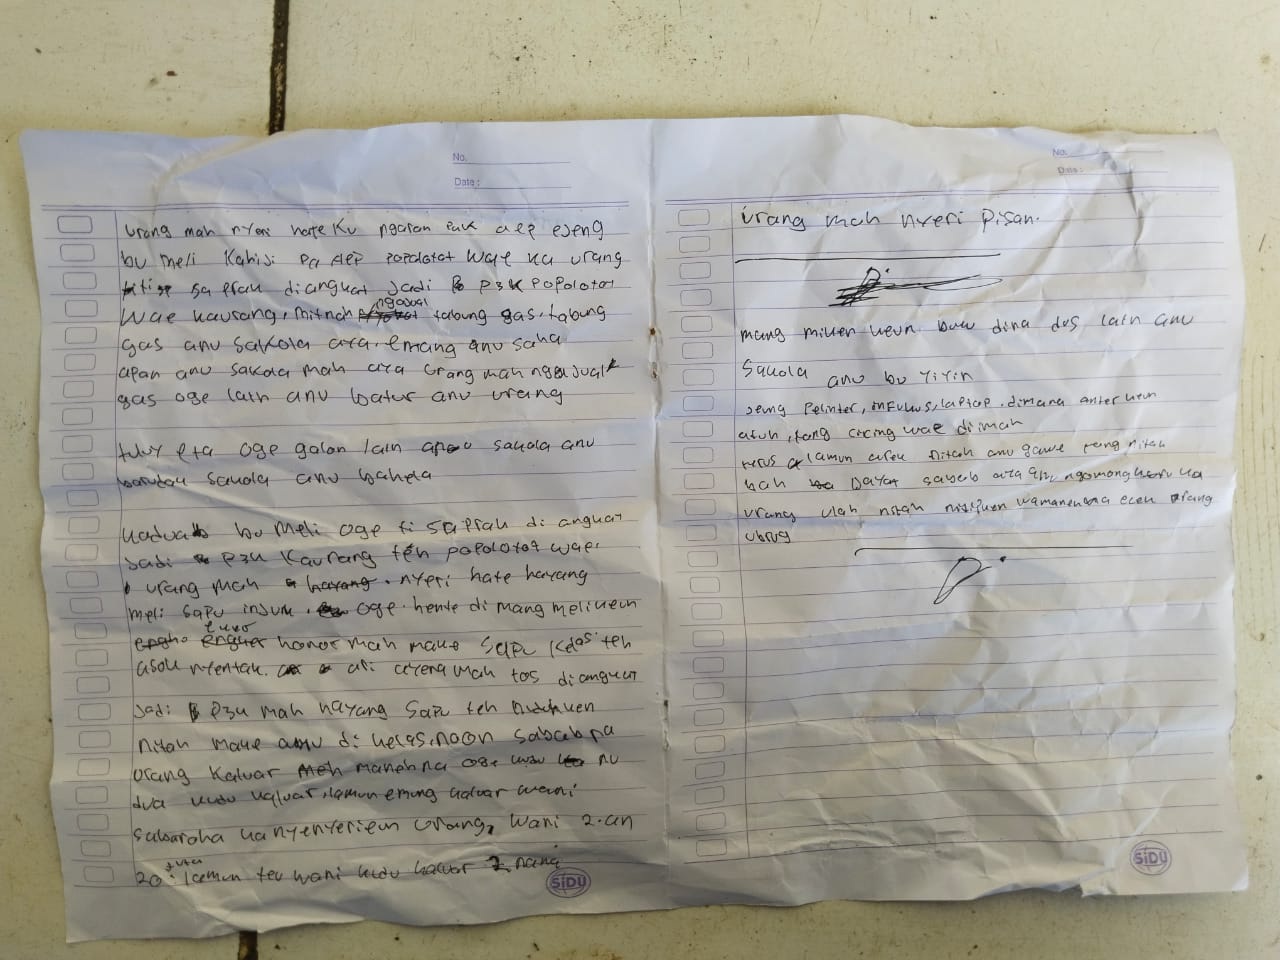 No.
Date:
urang mah nyeri hate Ku ngaran pak aep eseng
bu meli Kahiji Pa Aep popolotot wae ka urang
ti saprak diangkat jadi P3K popolotot
wae kaurang, mitnah ngajual tabung gas, tabung
gas anu sakola aya. emang anu saha
apan anu sakola mah aya urang mah ngajual
gas oge lain anu batur anu urang
tuluy eta oge galon lain anu sakola anu
barudak sakola anu baheula
kadua bu meli oge ti saprak di angkat
jadi P3K Kaurang teh popolotot wae.
urang mah nyeri hate hayang
meli sapu injuk oge. hente di mang melikeun
euro honor mah make sapu kelas teh
asok nyentak. ari ayena mah tos diangkat
jadi P3K mah hayang sapu teh
nitah make anu di kelas, naon sababna
urang kaluar manehna oge kudu nu
dua kudu kaluar, lamun embung kaluar wani
sabaraha kanyenyerieun urang, wani 2.an
20 juta lamun teu wani kudu kaluar 2 nana
SIDU
No.
Date:
urang mah nyeri pisan.
mang milikeun buku dina dus lain anu
sakola anu bu Yiyin
jeung Pelinter, infukus, laptop. dimana anterkeun
atuh, tong cicing wae diimah
terus lamun arek nitah anu gawe tong nitah
bah Dayat sabab aya anu ngomong ka
urang ulah nitah urang
ubrug
SIDU